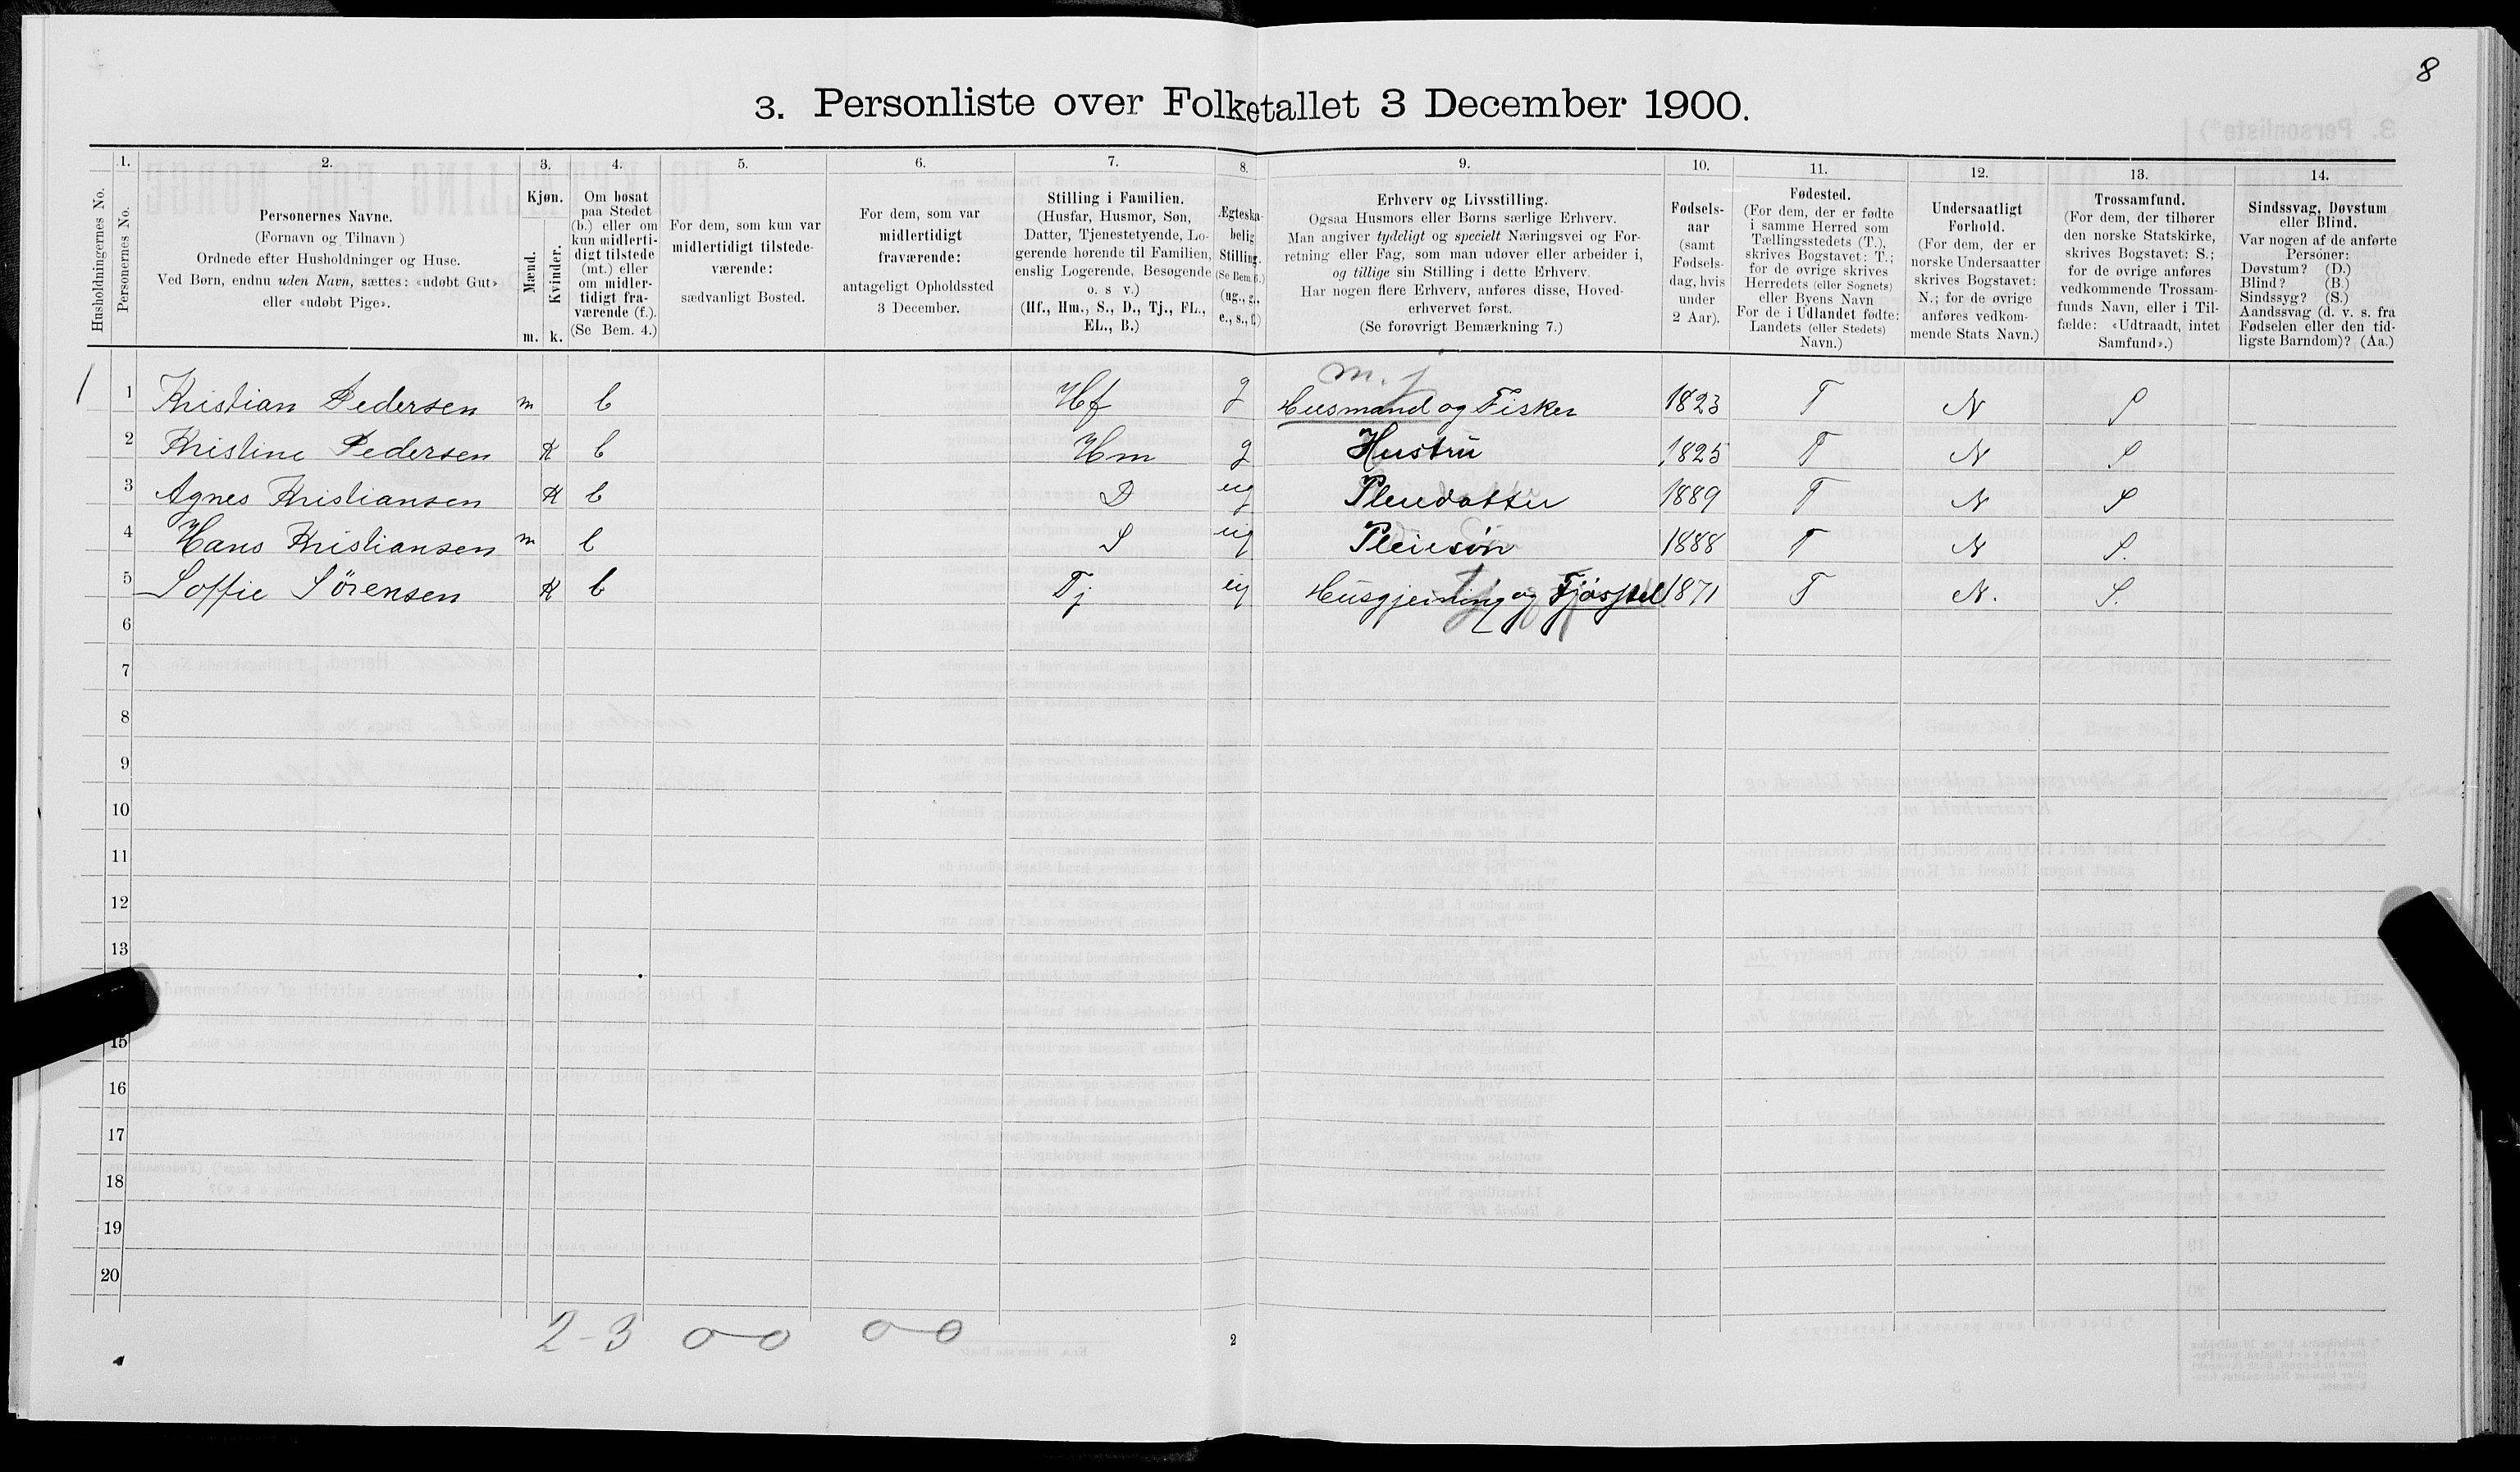 8
3. Personliste over Folketallet 3 December 1900.
Husholdningernes No.
1.
Personernes No.
2.
Personernes Navne.
(Fornavn og Tilnavn)
Ordnede efter Husholdninger og Huse.
Ved Børn, endnu uden Navn, sættes: «udøbt Gut»
eller «udøbt Pige».
3.
Kjøn.
Mænd.
Kvinder.
m. k.
4.
Om bosat
paa Stedet
(b.) eller om
kun midlerti-
digt tilstede
(mt.) eller
om midler-
tidigt fra-
værende (f.).
(Se Bem. 4.)
5.
For dem, som kun var
midlertidigt tilstede-
værende:
sædvanligt Bosted.
6.
For dem, som var
midlertidigt
fraværende:
antageligt Opholdssted
3 December.
7.
Stilling i Familien.
(Husfar, Husmor, Søn,
Datter, Tjenestetyende, Lo-
gerende hørende til Familien,
enslig Logerende, Besøgende
o. s v.)
(Hf., Hm., S., D., Tj., FL.,
EL., B.)
8.
Ægteska-
belig
Stilling.
(Se Bem. 6.)
(ug., g.,
e., s., f.)
9.
Erhverv og Livsstilling.
Ogsaa Husmors eller Børns særlige Erhverv.
Man angiver tydeligt og specielt Næringsvei og For-
retning eller Fag, som man udøver eller arbeider i,
og tillige sin Stilling i dette Erhverv.
Har nogen flere Erhverv, anføres disse, Hoved-
erhvervet først.
(Se forøvrigt Bemærkning 7.)
10.
Fødsels-
aar
(samt
Fødsels-
dag, hvis
under
2 Aar).
11.
Fødested.
(For dem, der er fødte
i samme Herred som
Tællingsstedets (T.),
skrives Bogstavet: T.;
for de øvrige skrives
Herredets (eller Sognets)
eller Byens Navn
For de i Udlandet fødte:
Landets (eller Stedets)
Navn.)
12.
Undersaatligt
Forhold.
(For dem, der er
norske Undersaatter
skrives Bogstavet:
N.; for de øvrige
anføres vedkom-
mende Stats Navn.)
13.
Trossamfund.
(For dem, der tilhører
den norske Statskirke,
skrives Bogstavet: S.;
for de øvrige anføres
vedkommende Trossam-
funds Navn, eller i Til-
fælde: «Udtraadt, intet
Samfund».)
14.
Sindssvag, Døvstum
eller Blind.
Var nogen af de anførte
Personer:
Døvstum? (D.)
Blind? (B.)
Sindssyg? (S.)
Aandssvag (d. v. s. fra
Fødselen eller den tid-
ligste Barndom)? (Aa.)
m. j
1 1 Kristian Pedersen m b Hf g Husmand og Fisker 1823 T N S
2 Kristine Pedersen K b Hm g Hustru 1825 T N S
3 Agnes Kristiansen K b D ug Pleiedatter 1889 T N S
4 Hans Kristiansen m b S ug Pleiesøn 1888 T N S.
5 Soffie Sørensen K b Tj ug Husgjerning og Fjøsstel 1871 T N. S.
6
7
8
9
10
11
12
13
15
16
17
18
19
20
2-3 0-0 0-0
2